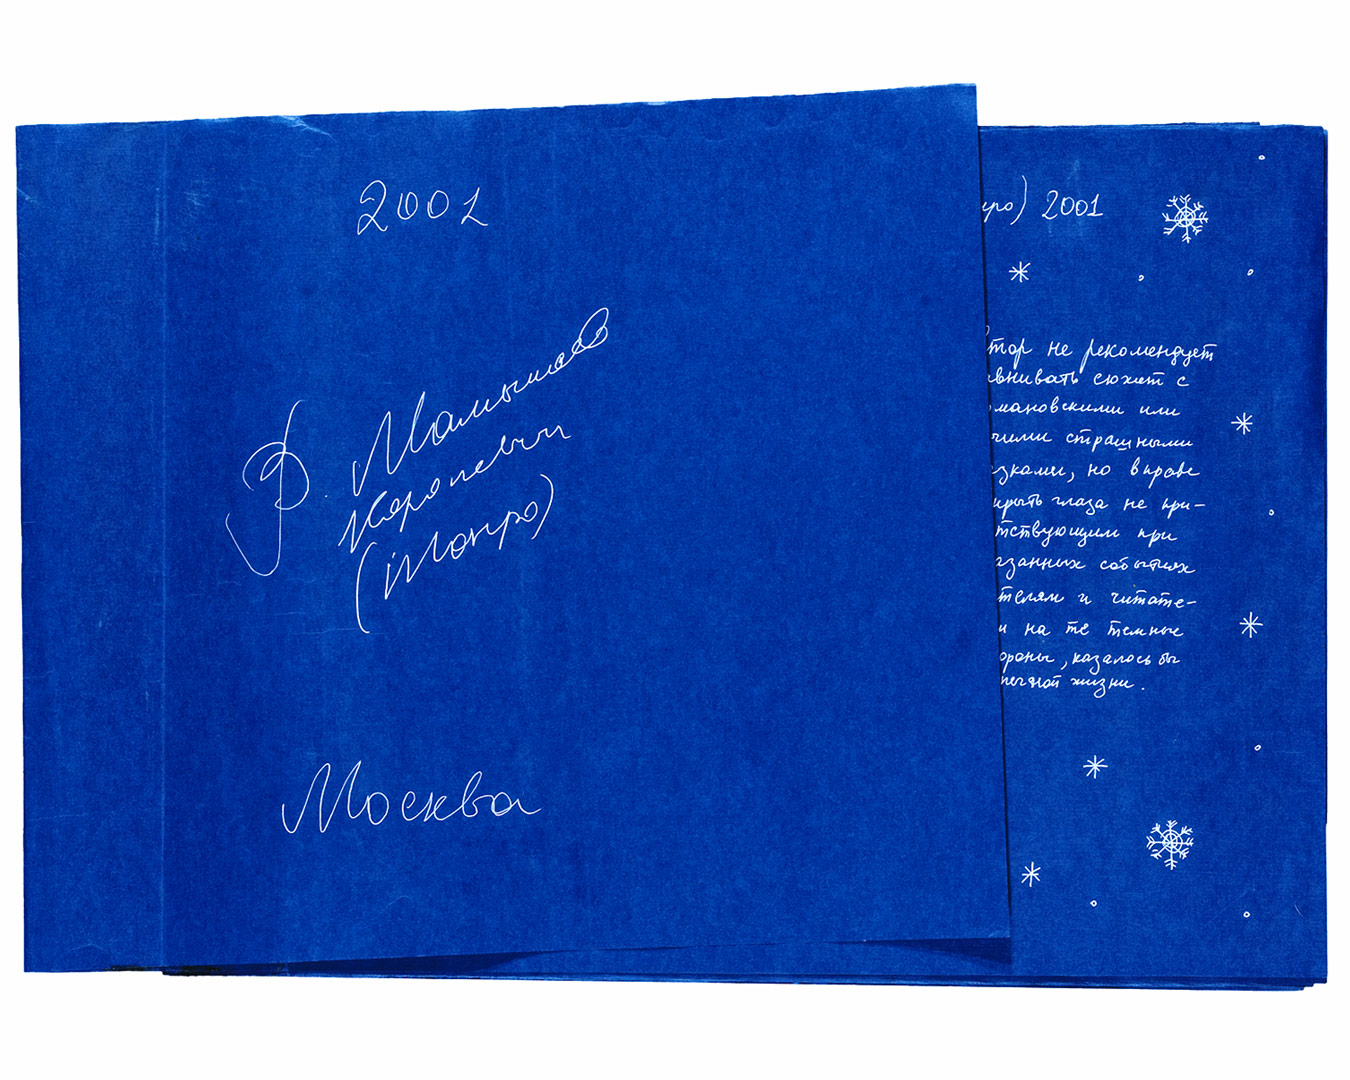 2001
В. Мамышев
Королевич
(Монро)
Москва
нро) 2001
втор не рекомендует
внивать сюжет с
мановскими или
чими страшными
зками, но вправе
крыть глаза не при-
тствующим при
азанных событиях
телям и читате-
и на те темные
ороны, казалось бы
жизни.